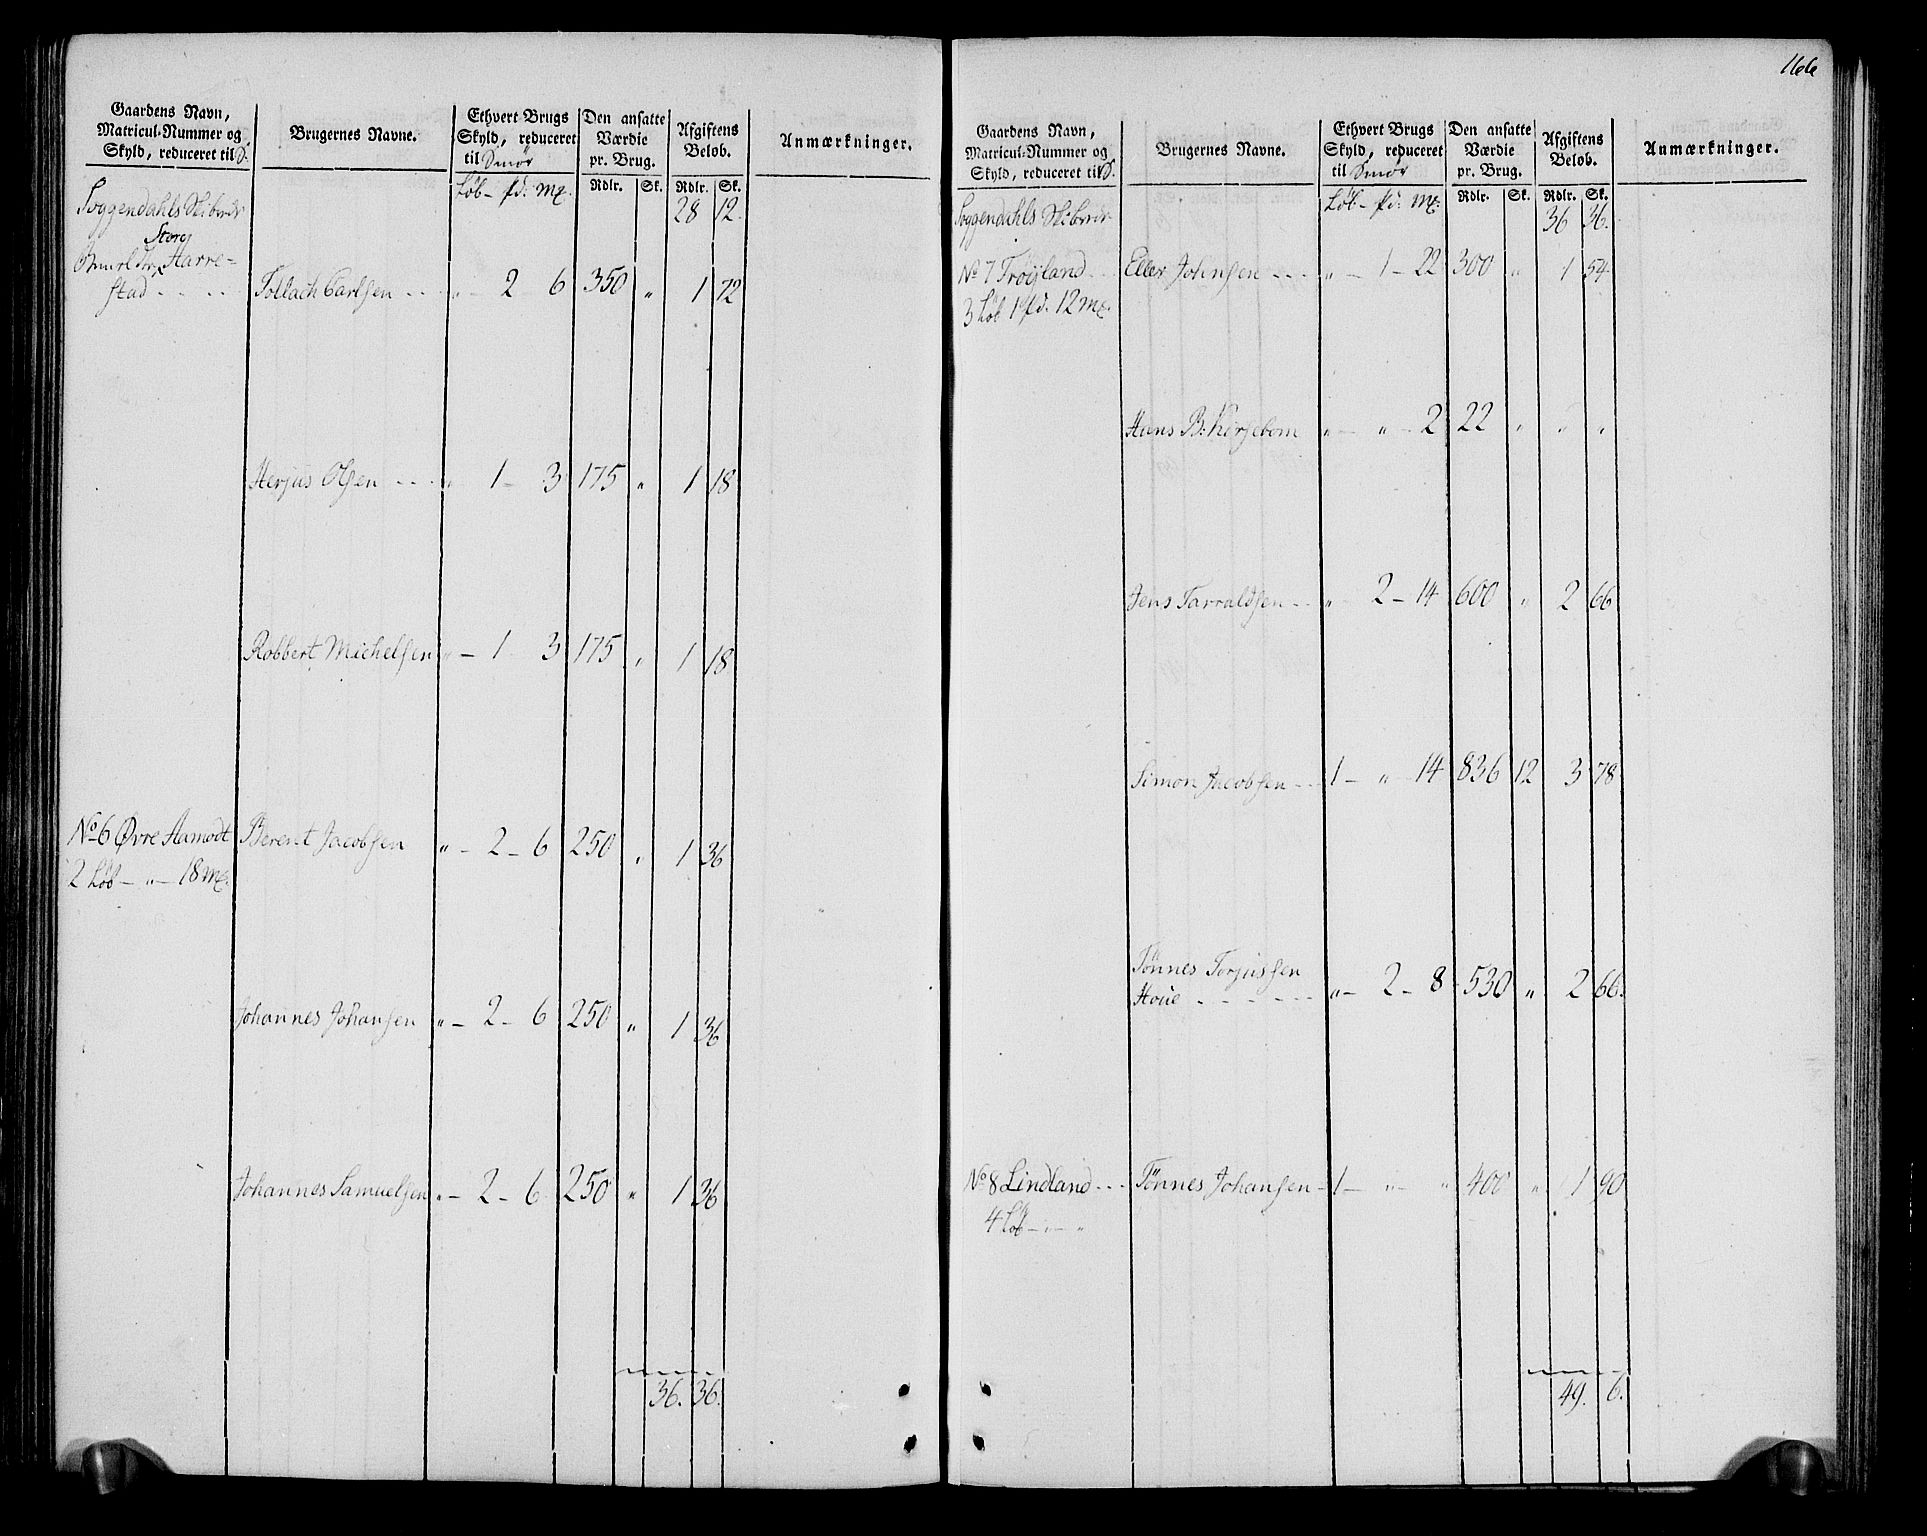 Gaardens Navn,
Matricul-Nummer og
Skyld, reduceret til S.
Brugernes Navne.
Ethvert Brugs
Skyld, reduceret
til Smör
Löb – pd: mk.
Den ansatte
Værdie
pr. Brug.
Rdlr. Sk.
Afgiftens
Belob.
Rdlr. Sk.
Anmærkninger.
Soggendahls Skibrede
28 12.
Store
Aarre-
stad - - - - Tollach Carlsen - - - „ 2 6 350 „ 1 72
Herjus Olsen - - - „ 1 – 3 175 „ 1 18
Robbert Michelsen „ – 1 3 175 „ 1 18
No 6 Øvre Aamodt Berent Jacobsen „ – 2 – 6 250 „ 1 36
2 Löb – „ – 18 mk.
Johannes Johansen „ – 2 – 6 250 „ 1 36
Johannes Samuelsen „ – 2 – 6 250 „ 1 36
36. 36.
166
Gaardens Navn,
Matricul-Nummer og
Skyld, reduceret til S.
Brugernes Navne.
Ethvert Brugs
Skyld, reduceret
til Smör
Löb – pd: mk:
Den ansatte
Værdie
pr. Brug.
Rdlr. Sk.
Afgiftens
Belob.
Rdlr. Sk.
Anmærkninger.
Soggendahls Skibrede
36 36.
No 7 Tröjland - - Eller Johnsen - - - „ – 1 – 22 300 „ 1 54
3 Löb 1 pd. 12 mk.
Hans B: Kirsebom „ – „ – 2 22 „ „ „
Jens Tarraldsen - - „ 2 – 14 600 „ 2 66
Simon Jacobsen - - 1 – „ 14 836 12 3 78
Tönnes Torjussen
Houe - - - - - - „ – 2 – 8 530 „ 2 66.
No 8 Lindland - - - Tönnes Johansen – 1 – „ – „ 400 „ 1 90
4 Löb – „ – „
49. 6.